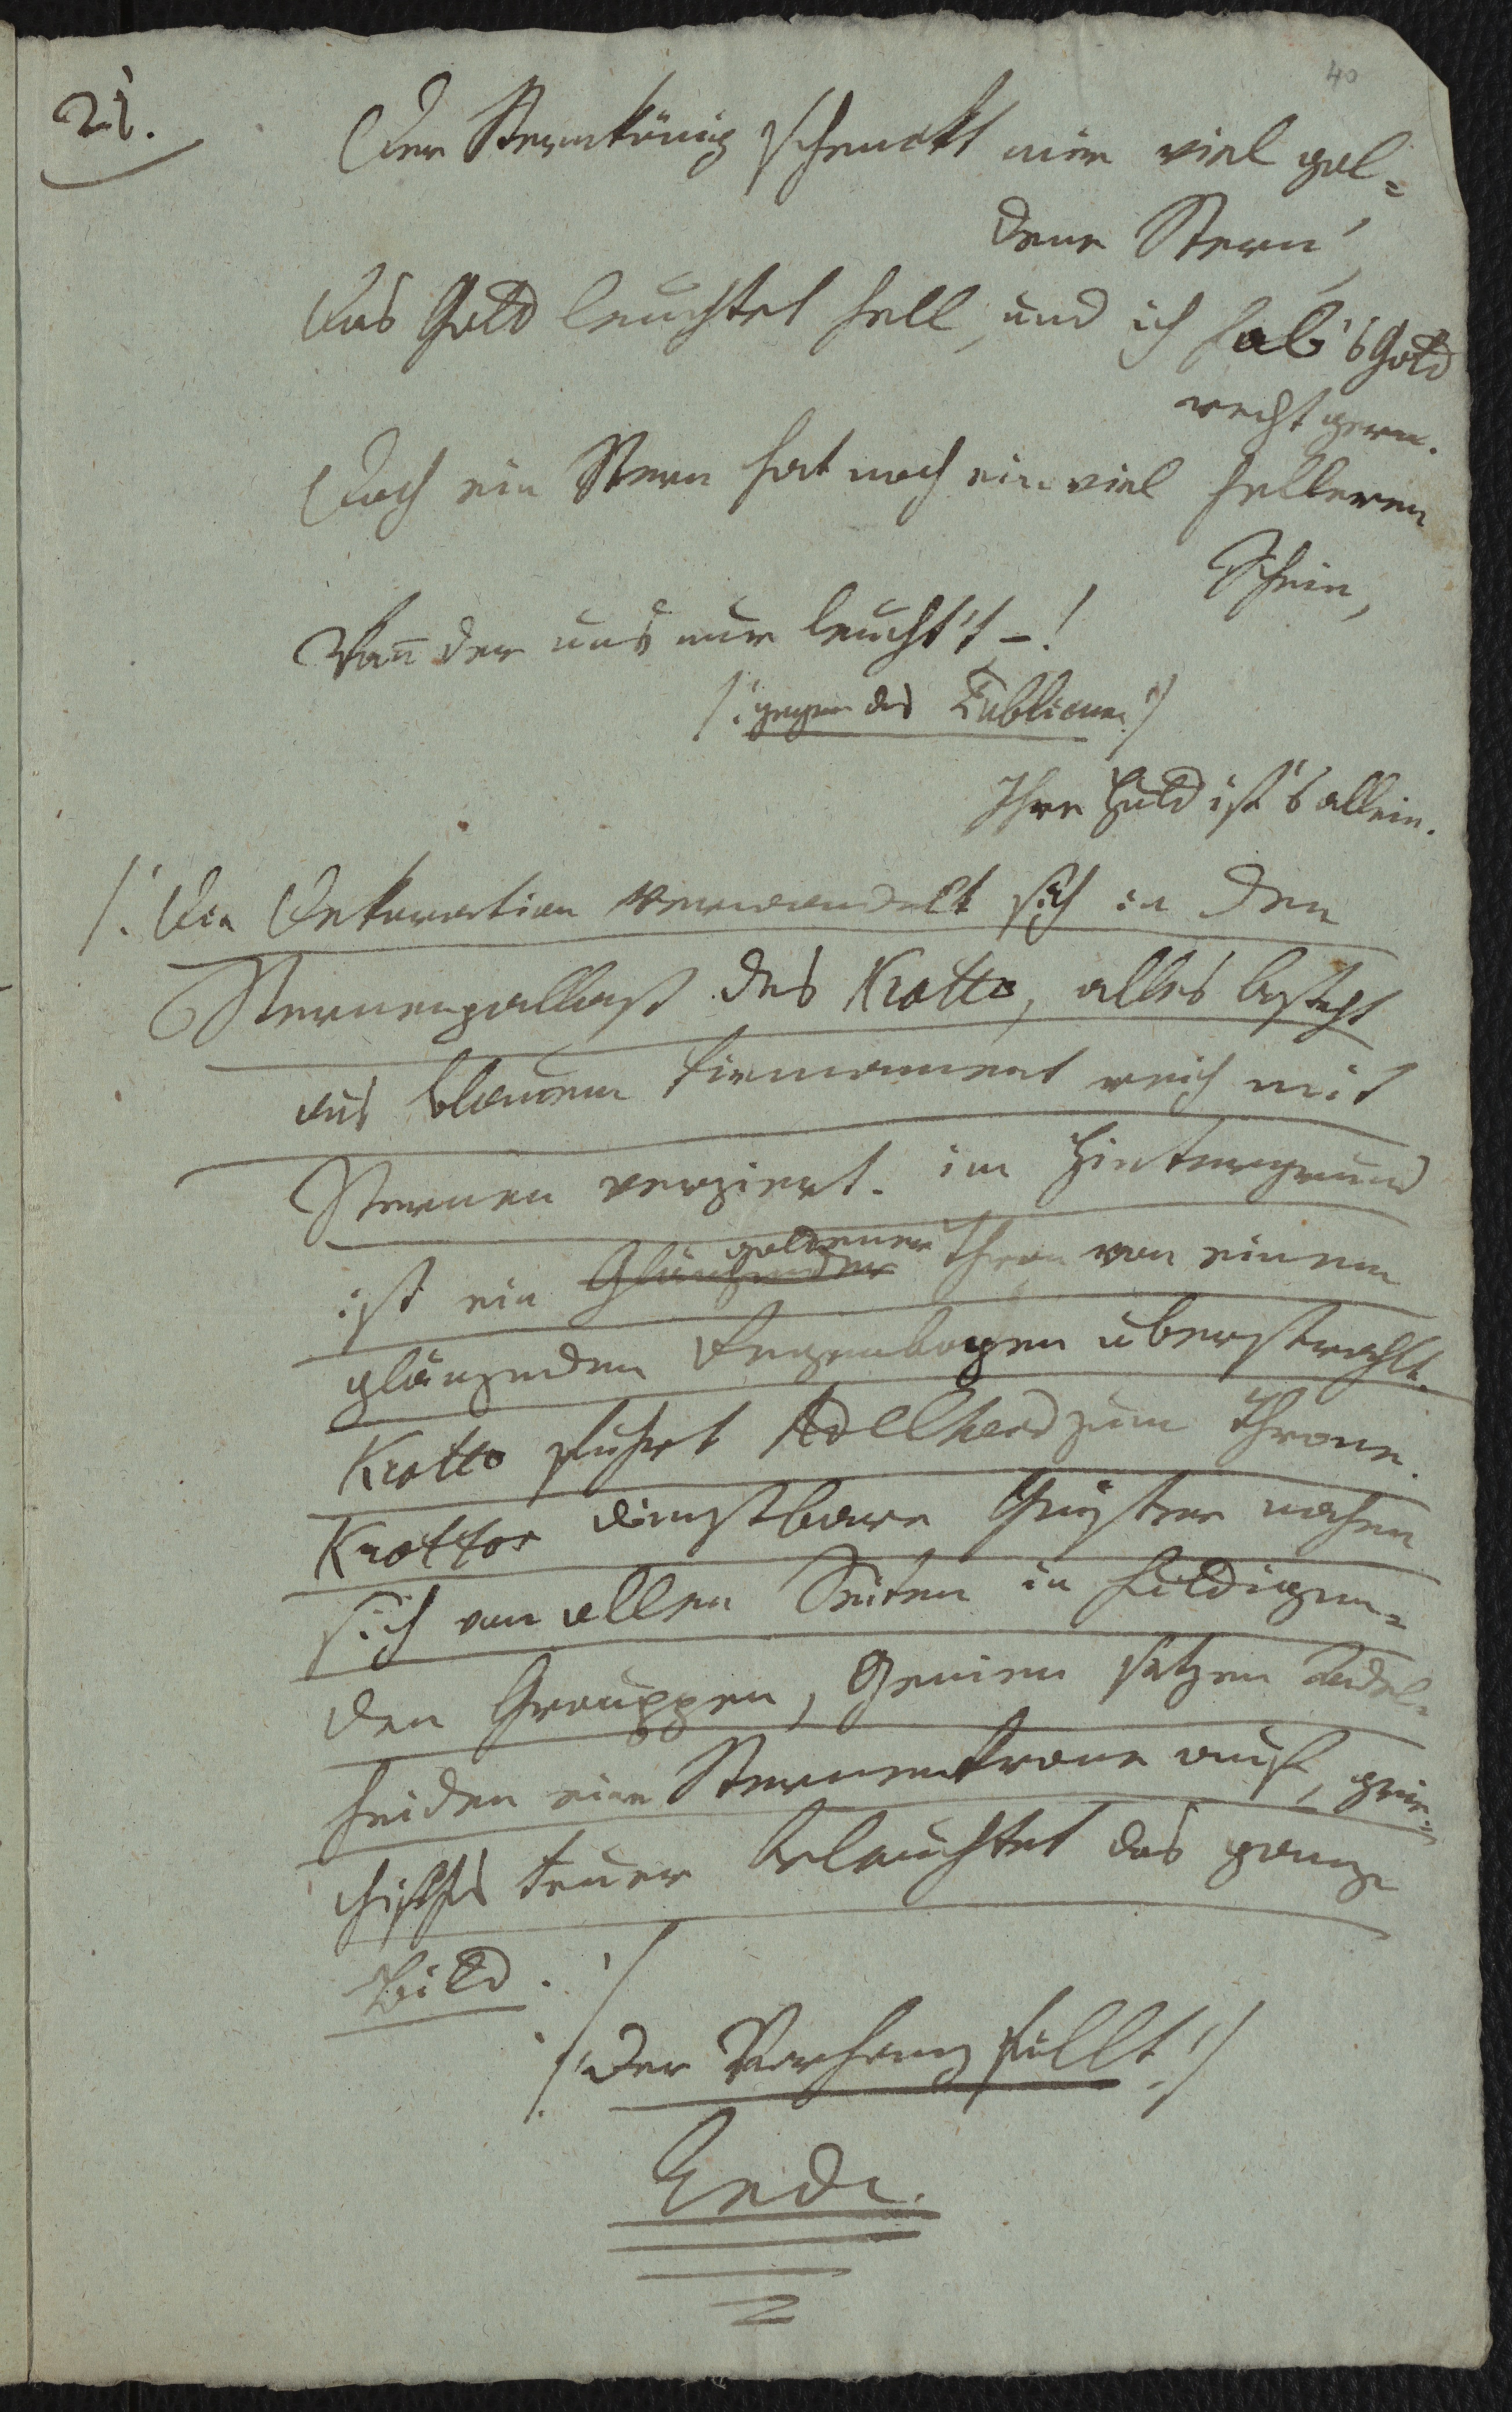 40
21.
Der Sternkönig schenckt mir viel gol=
dene Stern,
Das Gold leuchtet hell, und ich hab's Gold
recht gern.
Doch ein Stern hat noch ein viel helleren
Schein,
Wan̄ der uns nur leucht't –!
/: gegen das Publicum :/
Ihre Huld ist's allein.
/: Die Dekoration verwandelt sich in den
Sternenpallast des Kratto, alles besteht
aus blauem Firmament reich mit
Sternen verziert. im Hintergrund
goldener
ist ein Glänzender Thron von einem
glänzenden Regenbogen überstrahlt.
Kratto führt Adelheid zum Throne.
Krattos dienstbare Geister nahen
sich von allen Seiten in huldigen=
den Grouppen, Genien setzen Adel=
heiden eine Sternenkrone auf, grie=
chisches Feuer beleuchtet das ganze
Bild. :/
/: der Vorhang fällt :/
Ende.